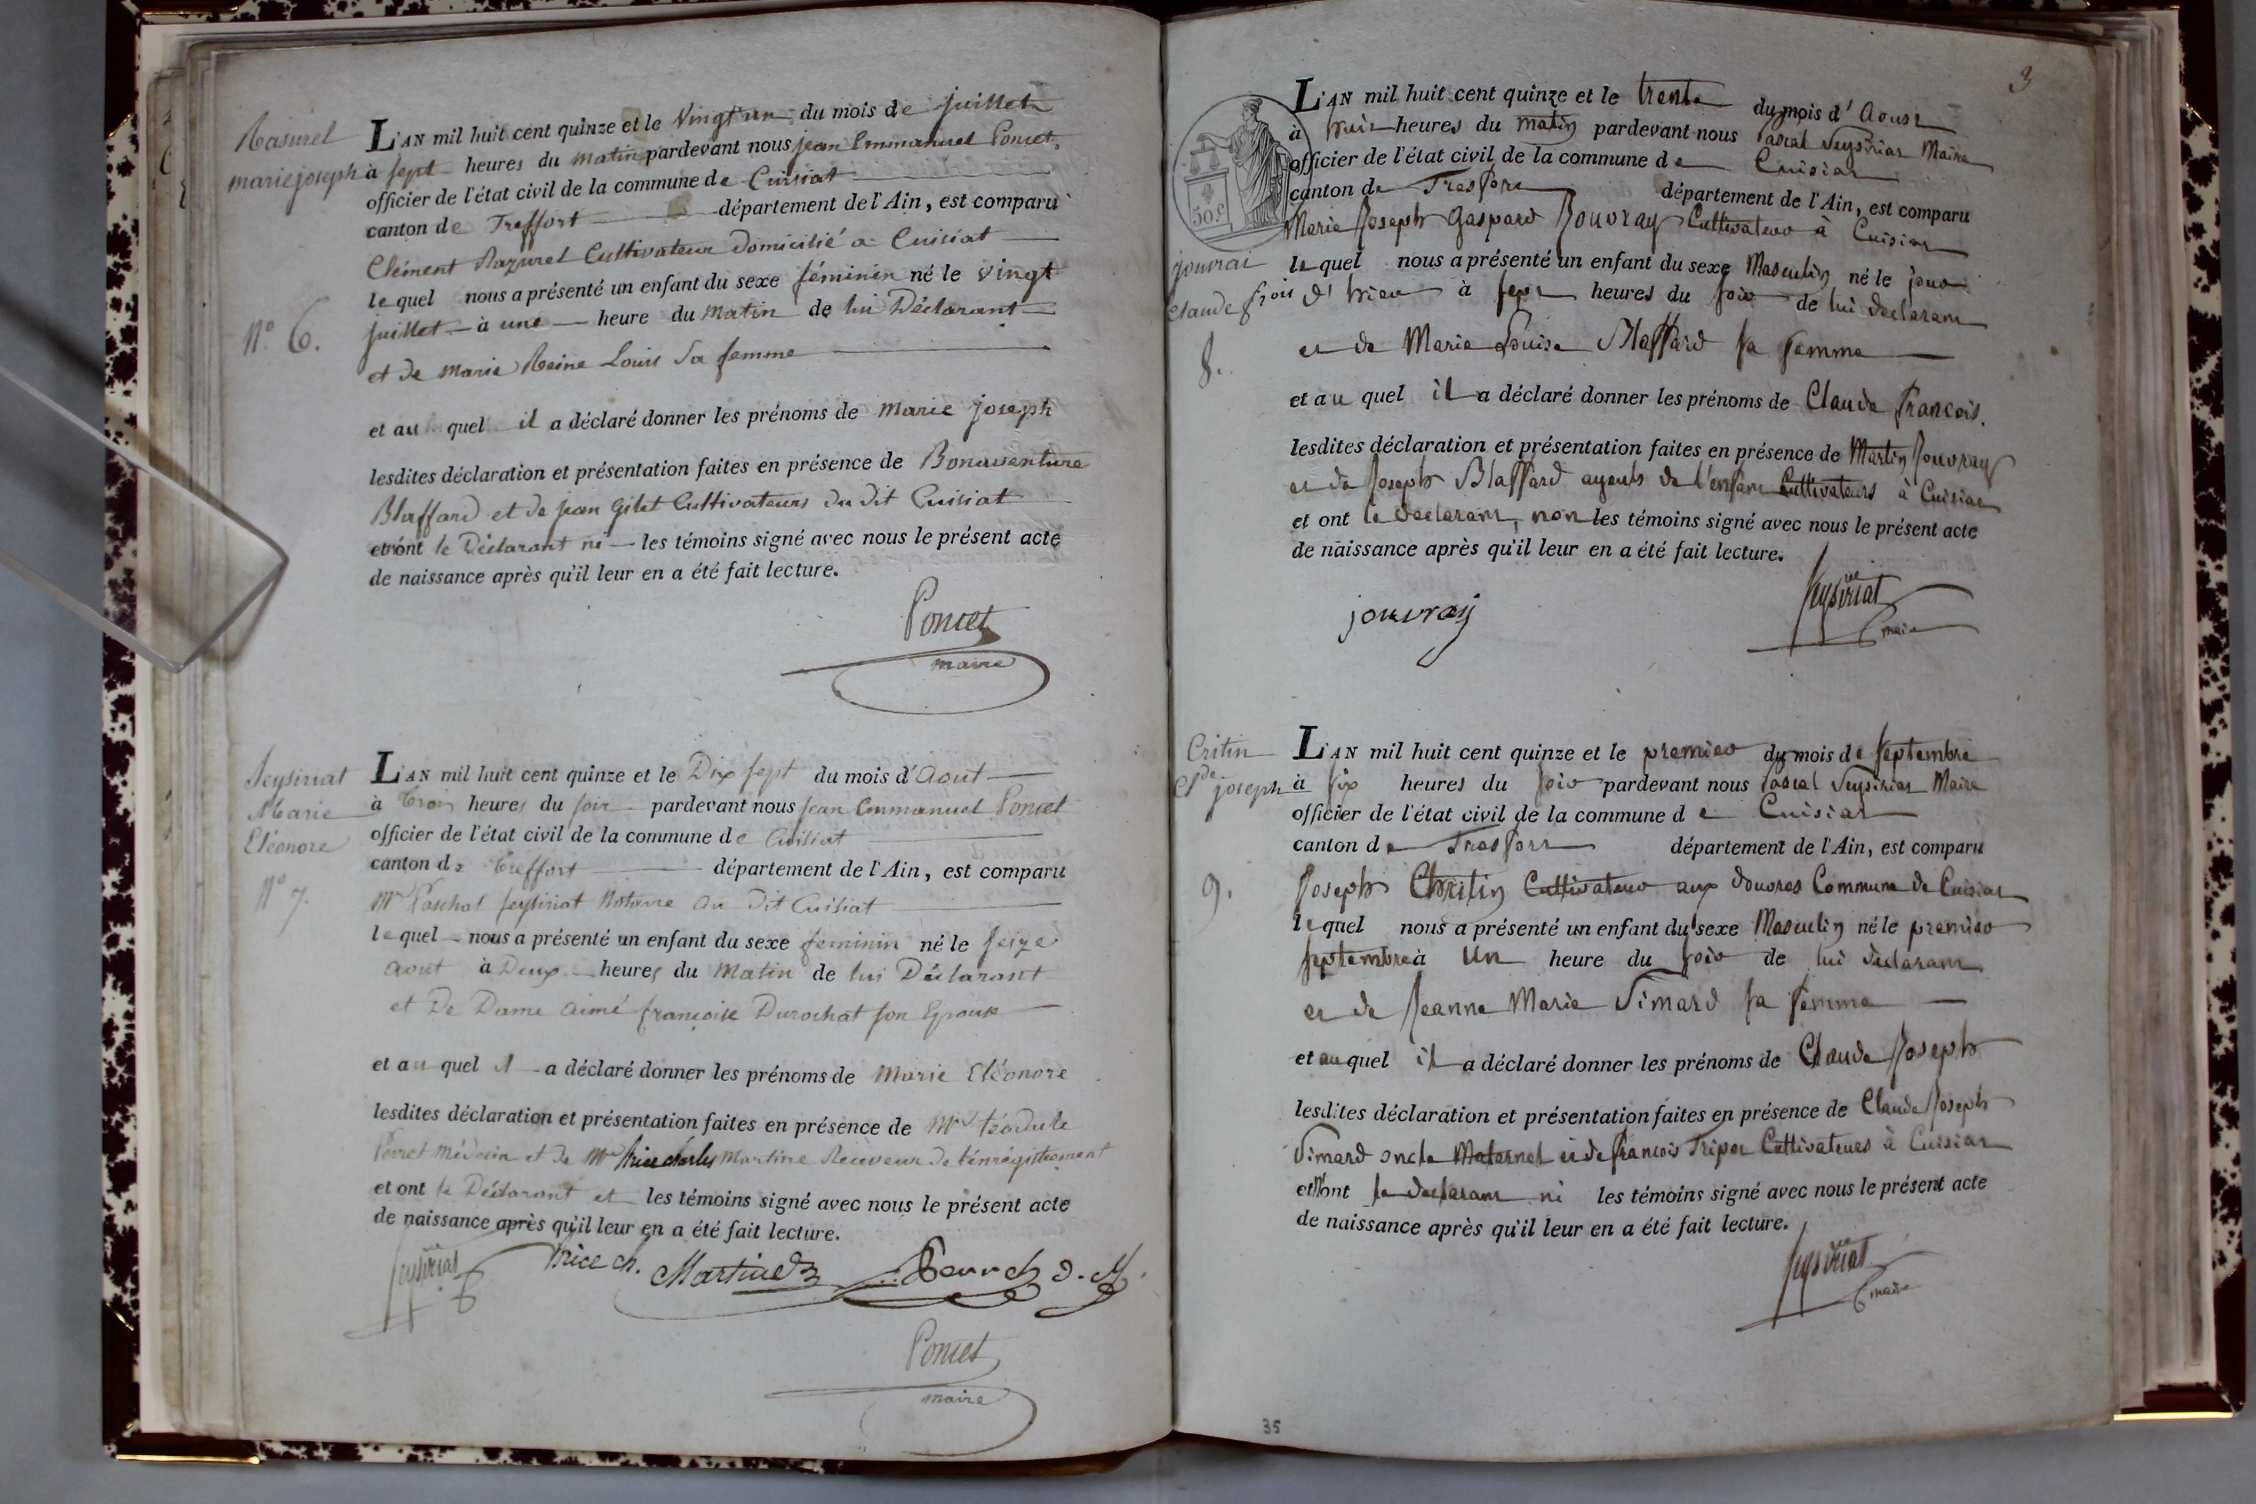 Rasurel
marie joseph
N° 6.
L'AN mil huit cent quinze et le vingt un du mois de juillet
à sept heures du matin pardevant nous jean Emmanuel Poncet
officier de l'état civil de la commune de Cuisiat
canton de Treffort département de l'Ain, est comparu
Clément Razurel Cultivateur domicilié a Cuisiat
lequel nous a présenté un enfant du sexe féminin né le vingt
juillet à une heure du matin de lui Déclarant
et de marie Reine Louis sa femme
et au quel il a déclaré donner les prénoms de marie joseph
lesdites déclaration et présentation faites en présence de Bonaventure
Blaffard et de jean Gilet Cultivateurs du dit Cuisiat
et n'ont le Déclarant ni les témoins signé avec nous le présent acte
de naissance après qu'il leur en a été fait lecture.
Poncet
maire
Seysiriat
Marie
Eléonore
N° 7.
L'AN mil huit cent quinze et le Dix sept du mois d'Aout
à trois heures du soir pardevant nous jean Emmanuel Poncet
officier de l'état civil de la commune de Cuisiat
canton de Treffort département de l'Ain, est comparu
Mr Paschal seysiriat Notaire au dit Cuisiat
lequel nous a présenté un enfant du sexe feminin né le seize
aout à Deux heures du matin de lui Déclarant
et De Dame aimé françoise Durochat son Epouse
et au quel il a déclaré donner les prénoms de Marie Eléonore
lesdites déclaration et présentation faites en présence de Mr téodule
médecin et de Mr charles Martine Receveur de l'enregistrement
et ont le Déclarant et les témoins signé avec nous le présent acte
de naissance après qu'il leur en a été fait lecture.
Seysiriat
Poncet
maire
3
50 c
jouvrai
Claude frois
8.
L'AN mil huit cent quinze et le trente du mois d'Aoust
à huit heures du matin pardevant nous Pascal Seysiriat Maire
officier de l'état civil de la commune de Cuisiat
canton de Treffort département de l'Ain, est comparu
Marie Joseph Gaspard Jouvray Cultivateur à Cuisiat
lequel nous a présenté un enfant du sexe Masculin né le jour
d'hier à sept heures du soir de lui declarant
et de Marie Louise Blaffard sa femme
et au quel il a déclaré donner les prénoms de Claude François.
lesdites déclaration et présentation faites en présence de Martin Jouvray
et de Joseph Blaffard ayeuls de l'enfant Cultivateurs à Cuisiat
et ont le declarant, non les témoins signé avec nous le présent acte
de naissance après qu'il leur en a été fait lecture.
jouvray
Seysiriat
maire
Critin
Cde joseph
9.
L'AN mil huit cent quinze et le premier du mois de septembre
à six heures du soir pardevant nous Pascal Seysiriat Maire
officier de l'état civil de la commune de Cuisiat
canton de Treffort département de l'Ain, est comparu
Joseph Chritin Cultivateur aux douvres Commune de Cuisiat
lequel nous a présenté un enfant du sexe Masculin né le premier
septembre à Un heure du soir de lui declarant
et de Jeanne Marie Simard sa femme
et au quel il a déclaré donner les prénoms de Claude Joseph
lesdites déclaration et présentation faites en présence de Claude Joseph
Simard oncle Maternel et de francois Tripoz Cultivateurs à Cuisiat
et n'ont le declarant ni les témoins signé avec nous le présent acte
de naissance après qu'il leur en a été fait lecture.
Seysiriat
maire
35